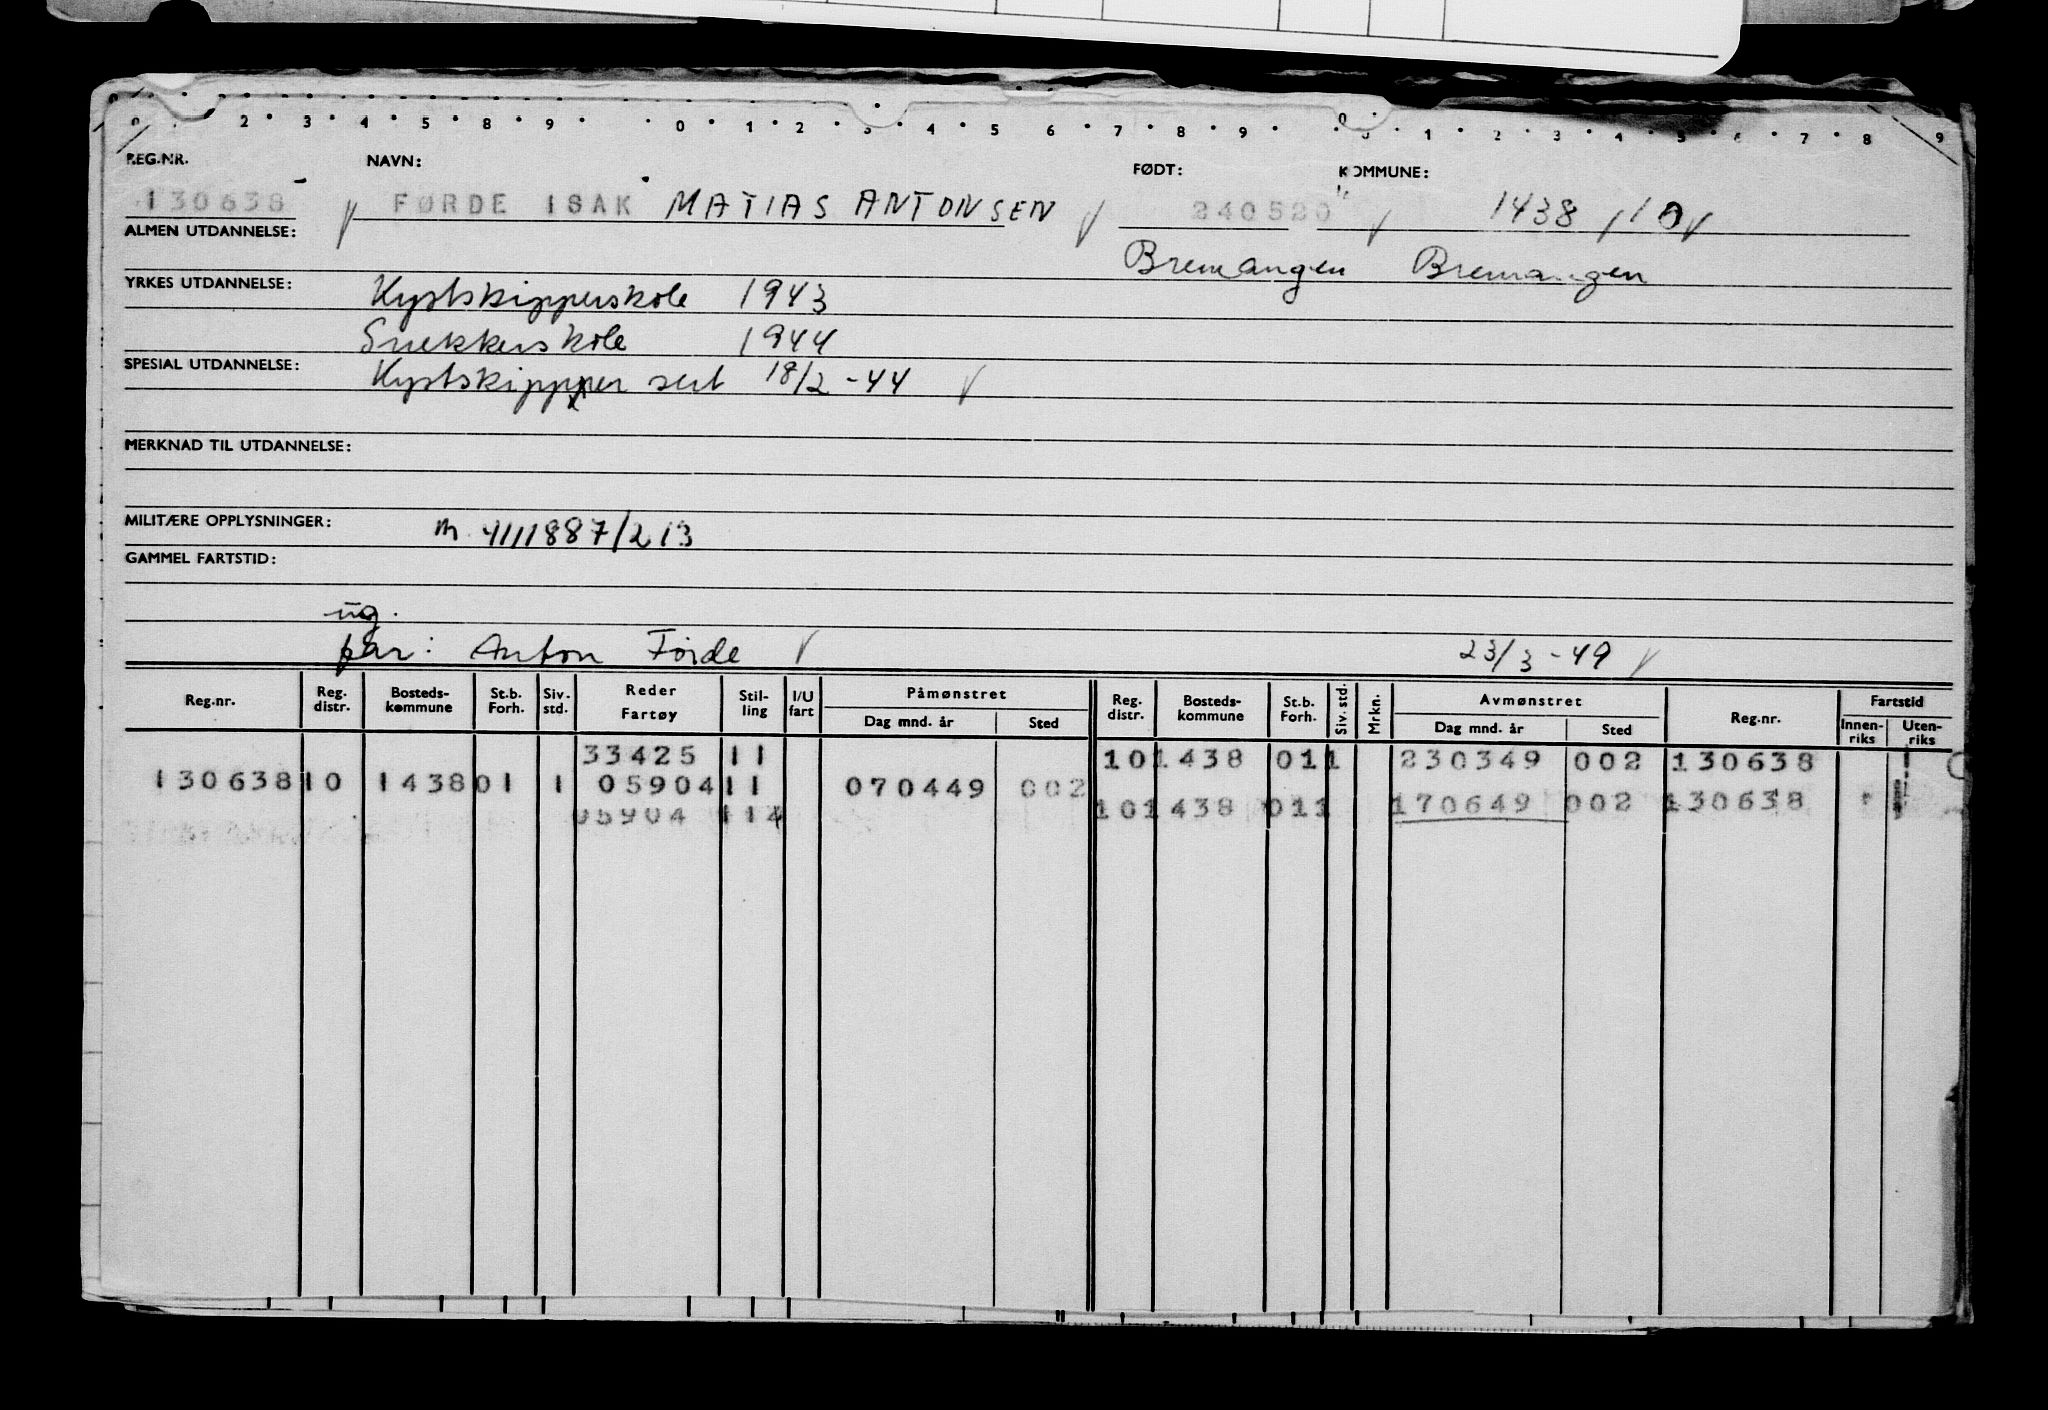 REG.NR. NAVN: FØDT: KOMMUNE:
130638 FØRDE ISAK MATIAS ANTONSEN 240520 1438 / 10
ALMEN UTDANNELSE: Bremangen Bremangen
YRKES UTDANNELSE: Kystskipperskole 1943
Snekkerskole 1944
SPESIAL UTDANNELSE: Kystskipper sert 18/2 -44
MERKNAD TIL UTDANNELSE:
MILITÆRE OPPLYSNINGER: m. 4111887/213
GAMMEL FARTSTID:
ug.
par: Anton Förde 23/3 -49
Reg.nr. Reg. distr. Bosteds- kommune St.b. Forh. Siv. std. Reder Fartøy Stil- ling I/U fart Påmønstret Dag mnd. år Sted Reg. distr. Bosteds- kommune St.b. Forh. Siv. std. Mrkn. Avmønstret Dag mnd. år Sted Reg.nr. Fartstid Innen- riks Uten- riks
33425 11 10 1438 01 1 230349 002 130638
130638 10 1438 01 1 05904 11 070449 002
05904 11 10 1438 01 1 170649 002 130638